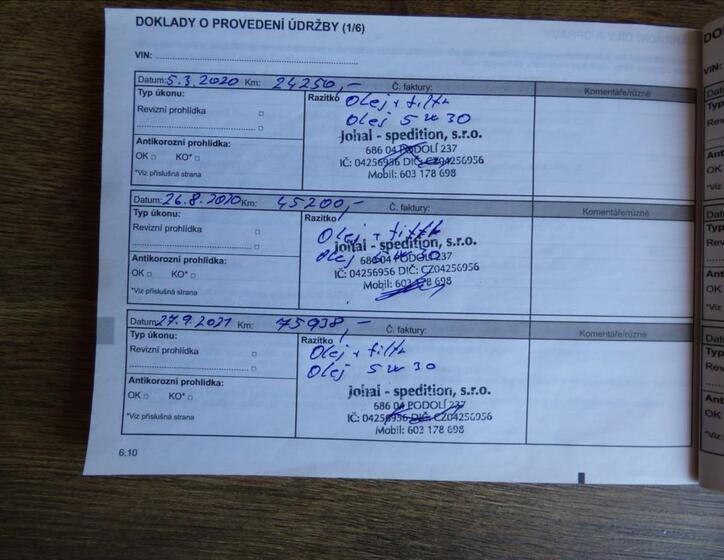 DOKLADY O PROVEDENÍ ÚDRŽBY (1/6)
VIN:
Datum: 5.3.2020 Km: 24250,- Č. faktury: Komentáře/různé
Typ úkonu:
Revizní prohlídka
Antikorozní prohlídka:
OK KO*
*Viz příslušná strana
Razítko Olej + filtr
Olej 5w30
Johai - spedition, s.r.o.
686 04 PODOLÍ 237
IČ: 04256956 DIČ: CZ04256956
Mobil: 603 178 698
Datum: 26.8.2020 Km: 45200,- Č. faktury: Komentáře/různé
Typ úkonu:
Revizní prohlídka
Antikorozní prohlídka:
OK KO*
*Viz příslušná strana
Razítko
Olej + filtr
Olej 5w30
Johai - spedition, s.r.o.
686 04 PODOLÍ 237
IČ: 04256956 DIČ: CZ04256956
Mobil: 603 178 698
Datum: 27.9.2021 Km: 75938,- Č. faktury: Komentáře/různé
Typ úkonu:
Revizní prohlídka
Antikorozní prohlídka:
OK KO*
*Viz příslušná strana
Razítko
Olej + filtr
Olej 5w30
Johai - spedition, s.r.o.
686 04 PODOLÍ 237
IČ: 04256956 DIČ: CZ04256956
Mobil: 603 178 698
6.10